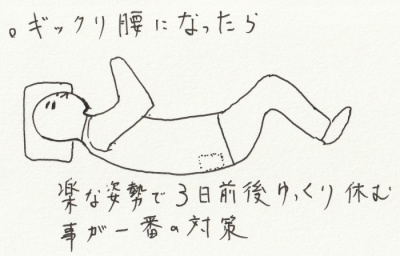 。ギックリ腰になったら
楽な姿勢で3日前後ゆっくり休む
事が一番の対策